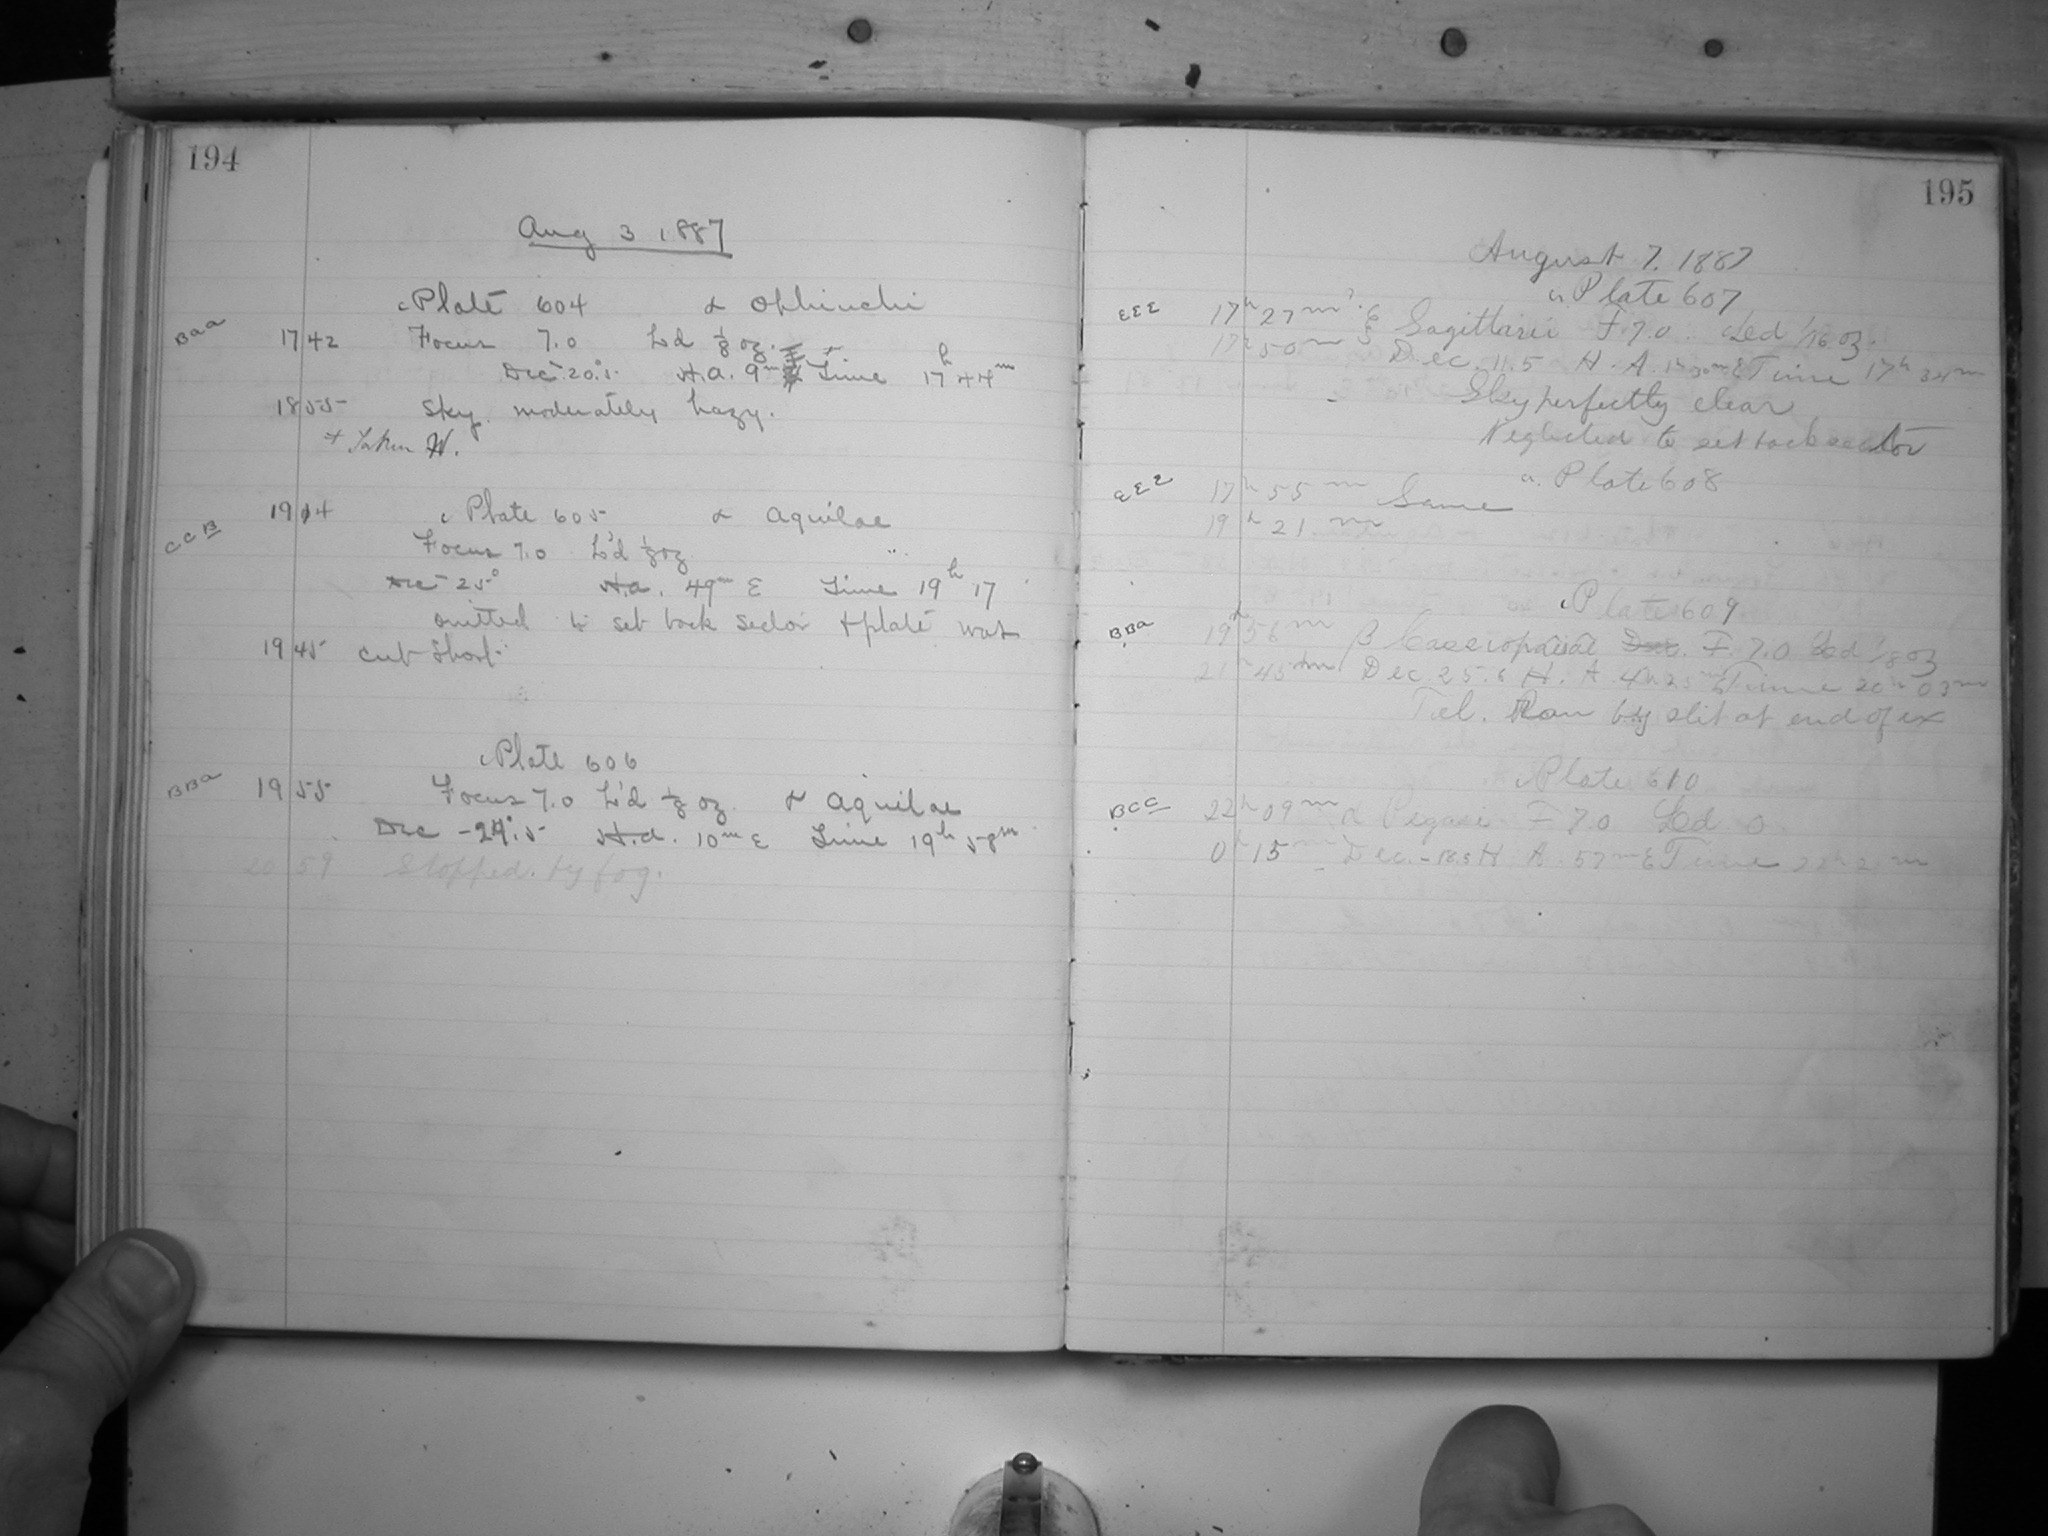 194
Aug 3 1887
Plate 604 α Ophiuchi
Baa 17 42 Focus 7.0 L'd 1/8 oz.
Dec - 20°.5 H.a. 9m Time 17h 44m
18 55 Sky moderately hazy.
+ Taken W.
19 14 Plate 605 α Aquilae
CCB Focus 7.0 L'd 1/8 oz
Dec - 25° H.a. 49m E Time 19h 17
omitted to set back sector & plate was
19 45 cut short.
Plate 606
BBa 19 55 Focus 7.0 L'd 1/8 oz. α Aquilae
Dec - 29°.5 H.a. 10m E Time 19h 58m
20 59 Stopped by fog.
195
August 7. 1887
Plate 607
EEE 17h 27m Sagittarii F 7.0 Led 1/16 oz.
17h 50m Dec. 11.5 H. A. E Time 17h 34m
Sky perfectly clear
Neglected to set back sector
Plate 608
EEE 17h 55m Same
19h 21m
Plate 609
BBa 19h 56m β Cassiopaiae Dec. F. 7.0 Led 1/8 oz
21h 45m Dec 25.6 H. A. 4h 25m E Time 20h 03m
Tel. Ran by slit at end of ex
Plate 610
BCC 22h 09m α Pegasi F 7.0 Led 0
0h 15m Dec. - 18.5 H A. 57m E Time 22h m